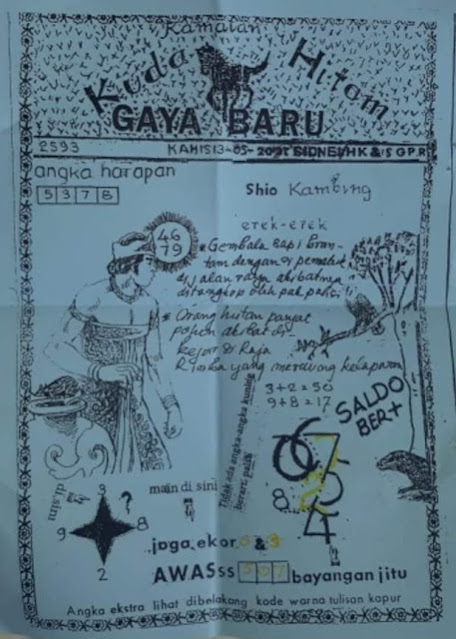 Ramalan
Kuda Hitam
GAYA BARU
2593
KAMIS 13-05-2021 SIDNEY HK & SGPR
angka harapan
5 3 7 8
Shio Kambing
erek-erek
46
79
Gembala Sapi bron-
tam dengan
di jalan raya akibatnya
ditangkap oleh pak polisi
Orang hutan panjat
pohon akibat di
kejar & Raja
Rimba yang meraung kelaparan
3+2=50
9+8=17
SALDO
BER+
Tidak ada angka-angka kuning
berarti palsu
main di sini
disini
3
?
9
8
2
6 7
2
8 5
4
joga ekor 0 & 3
AWASss 507 bayangan jitu
Angka ekstra lihat dibelakang kode warna tulisan kapur